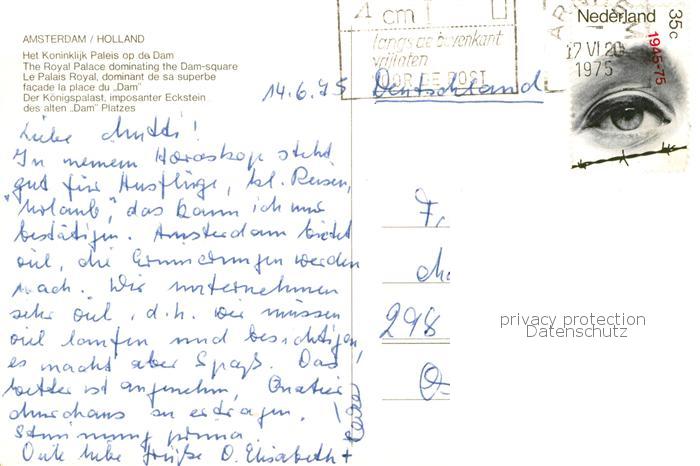 AMSTERDAM / HOLLAND
Het Koninklijk Paleis op de Dam
The Royal Palace dominating the Dam-square
Le Palais Royal, dominant de sa superbe
façade la place du „Dam"
Der Königspalast, imposanter Eckstein
des alten „Dam" Platzes
cm
langs de bovenkant
vrijlaten
VOOR DE POST
Nederland
35c
1945-75
17 VI 20
1975
14.6.75
Deutschland
Liebe Mutti!
In meinem Horoskop steht
gut für Ausflüge, kl. Reisen,
"Urlaub", das kann ich nur
bestätigen. Amsterdam bietet
viel, die Erinnerungen werden
wach. Wir unternehmen
sehr viel, d.h. wir müssen
viel laufen und besichtigen,
es macht aber Spaß. Das
Wetter ist angenehm, Quartier
durchaus zu ertragen.
Stimmung prima.
Viele liebe Grüße D. Elisabeth +
298
privacy protection
Datenschutz